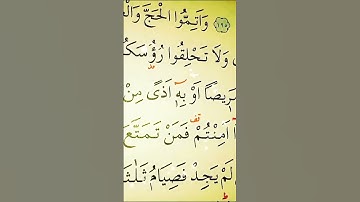 ﴿١٩٥﴾ وَاَتِمُّوا الْحَجَّ
وَلَا تَحْلِقُوا رُؤُسَكُ
اَوْ بِهٖٓ اَذًى مِنْ
اَمِنْتُمْ فَمَنْ تَمَتَّعَ
لَمْ يَجِدْ فَصِيَامُ ثَلٰثَ